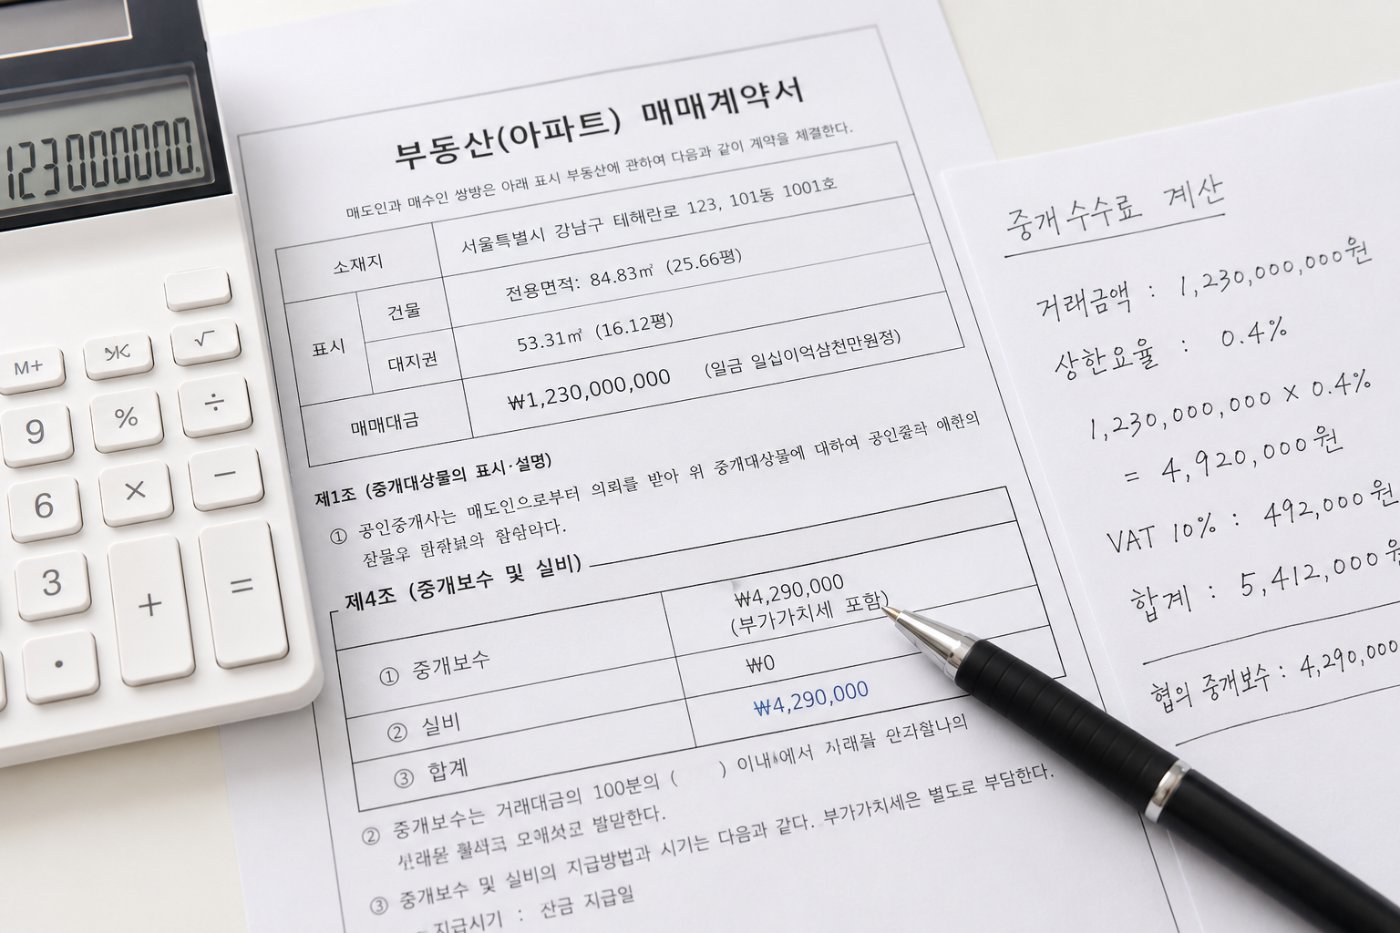 123000000.
M+
√
9
%
÷
6
×
−
3
+
=
부동산(아파트) 매매계약서
매도인과 매수인 쌍방은 아래 표시 부동산에 관하여 다음과 같이 계약을 체결한다.
소재지 서울특별시 강남구 테해란로 123, 101동 1001호
표시 건물 전용면적: 84.83㎡ (25.66평)
대지권 53.31㎡ (16.12평)
매매대금 ₩1,230,000,000 (일금 일십이억삼천만원정)
제1조 (중개대상물의 표시·설명)
① 공인중개사는 매도인으로부터 의뢰를 받아 위 중개대상물에 대하여
제4조 (중개보수 및 실비)
① 중개보수 ₩4,290,000
(부가가치세 포함)
② 실비 ₩0
③ 합계 ₩4,290,000
② 중개보수는 거래대금의 100분의 ( )
③ 중개보수 및 실비의 지급방법과 시기는 다음과 같다. 부가가치세은 별도로 부담한다.
- 지급시기 : 잔금 지급일
중개수수료 계산
거래금액 : 1,230,000,000원
상한요율 : 0.4%
1,230,000,000 × 0.4%
= 4,920,000원
VAT 10% : 492,000원
합계 : 5,412,000원
협의 중개보수 : 4,290,000